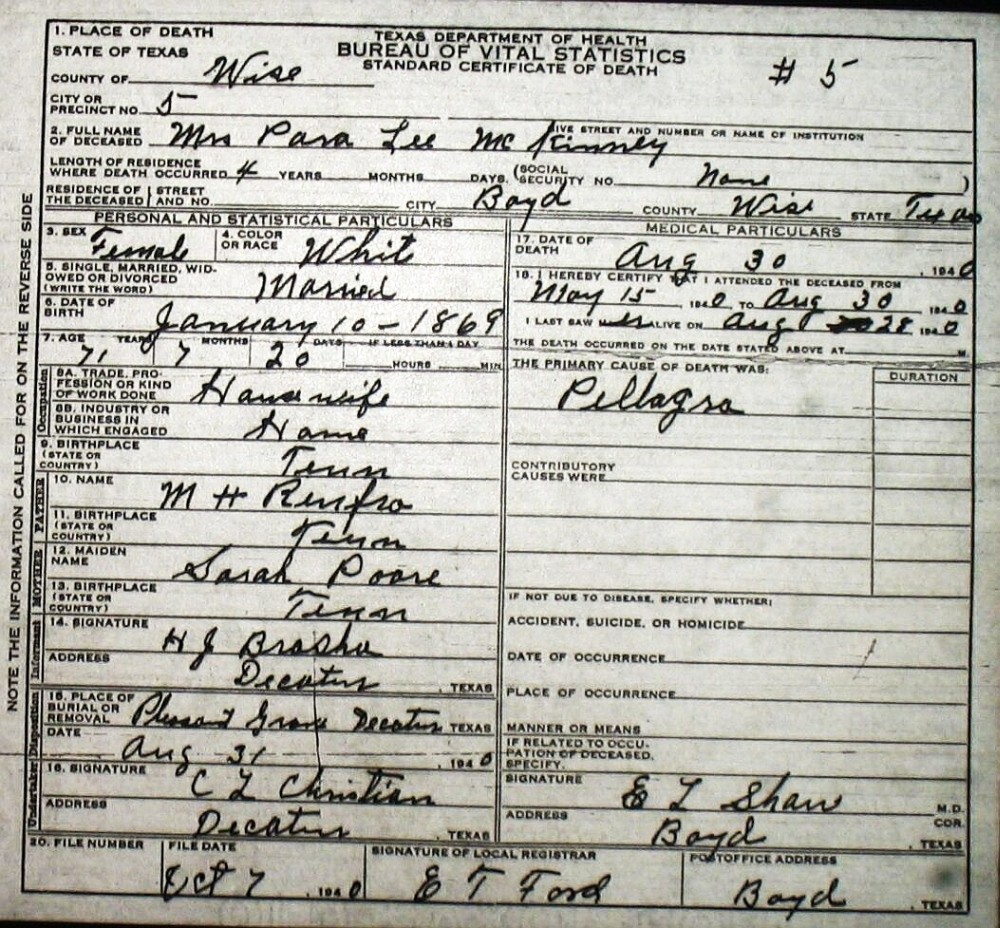 TEXAS DEPARTMENT OF HEALTH
BUREAU OF VITAL STATISTICS
STANDARD CERTIFICATE OF DEATH
# 5
1. PLACE OF DEATH
STATE OF TEXAS
COUNTY OF Wise
CITY OR PRECINCT NO. 5
GIVE STREET AND NUMBER OR NAME OF INSTITUTION
2. FULL NAME OF DECEASED Mrs Para Lee McKinney
LENGTH OF RESIDENCE WHERE DEATH OCCURRED 4 YEARS MONTHS DAYS. (SOCIAL SECURITY NO. None )
RESIDENCE OF THE DECEASED STREET AND NO. CITY Boyd COUNTY Wise STATE Texas
PERSONAL AND STATISTICAL PARTICULARS
3. SEX Female 4. COLOR OR RACE Whit
5. SINGLE, MARRIED, WIDOWED OR DIVORCED (WRITE THE WORD) Married
6. DATE OF BIRTH January 10 - 1869
7. AGE 71 YEARS 7 MONTHS 20 DAYS IF LESS THAN 1 DAY HOURS MIN.
Occupation
8A. TRADE, PROFESSION OR KIND OF WORK DONE House wife
8B. INDUSTRY OR BUSINESS IN WHICH ENGAGED Home
9. BIRTHPLACE (STATE OR COUNTRY) Tenn
FATHER
10. NAME M H Renfro
11. BIRTHPLACE (STATE OR COUNTRY) Tenn
MOTHER
12. MAIDEN NAME Sarah Poore
13. BIRTHPLACE (STATE OR COUNTRY) Tenn
Informant
14. SIGNATURE H J
ADDRESS Decatur, TEXAS
Disposition
15. PLACE OF BURIAL OR REMOVAL Pleasant Grove Decatur TEXAS
DATE Aug 31, 1940
Undertaker
16. SIGNATURE C L Christian
ADDRESS Decatur, TEXAS
MEDICAL PARTICULARS
17. DATE OF DEATH Aug 30, 1940
18. I HEREBY CERTIFY THAT I ATTENDED THE DECEASED FROM
May 15, 1940 TO Aug 30 1940
I LAST SAW HER ALIVE ON Aug 28 1940
THE DEATH OCCURRED ON THE DATE STATED ABOVE AT M.
THE PRIMARY CAUSE OF DEATH WAS: DURATION
Pellagra
CONTRIBUTORY CAUSES WERE
IF NOT DUE TO DISEASE, SPECIFY WHETHER:
ACCIDENT, SUICIDE, OR HOMICIDE
DATE OF OCCURRENCE
PLACE OF OCCURRENCE
MANNER OR MEANS
IF RELATED TO OCCUPATION OF DECEASED, SPECIFY.
SIGNATURE E L Shaw M.D. COR.
ADDRESS Boyd, TEXAS
20. FILE NUMBER
FILE DATE Oct 7, 1940
SIGNATURE OF LOCAL REGISTRAR E T Ford
POSTOFFICE ADDRESS Boyd, TEXAS
NOTE THE INFORMATION CALLED FOR ON THE REVERSE SIDE